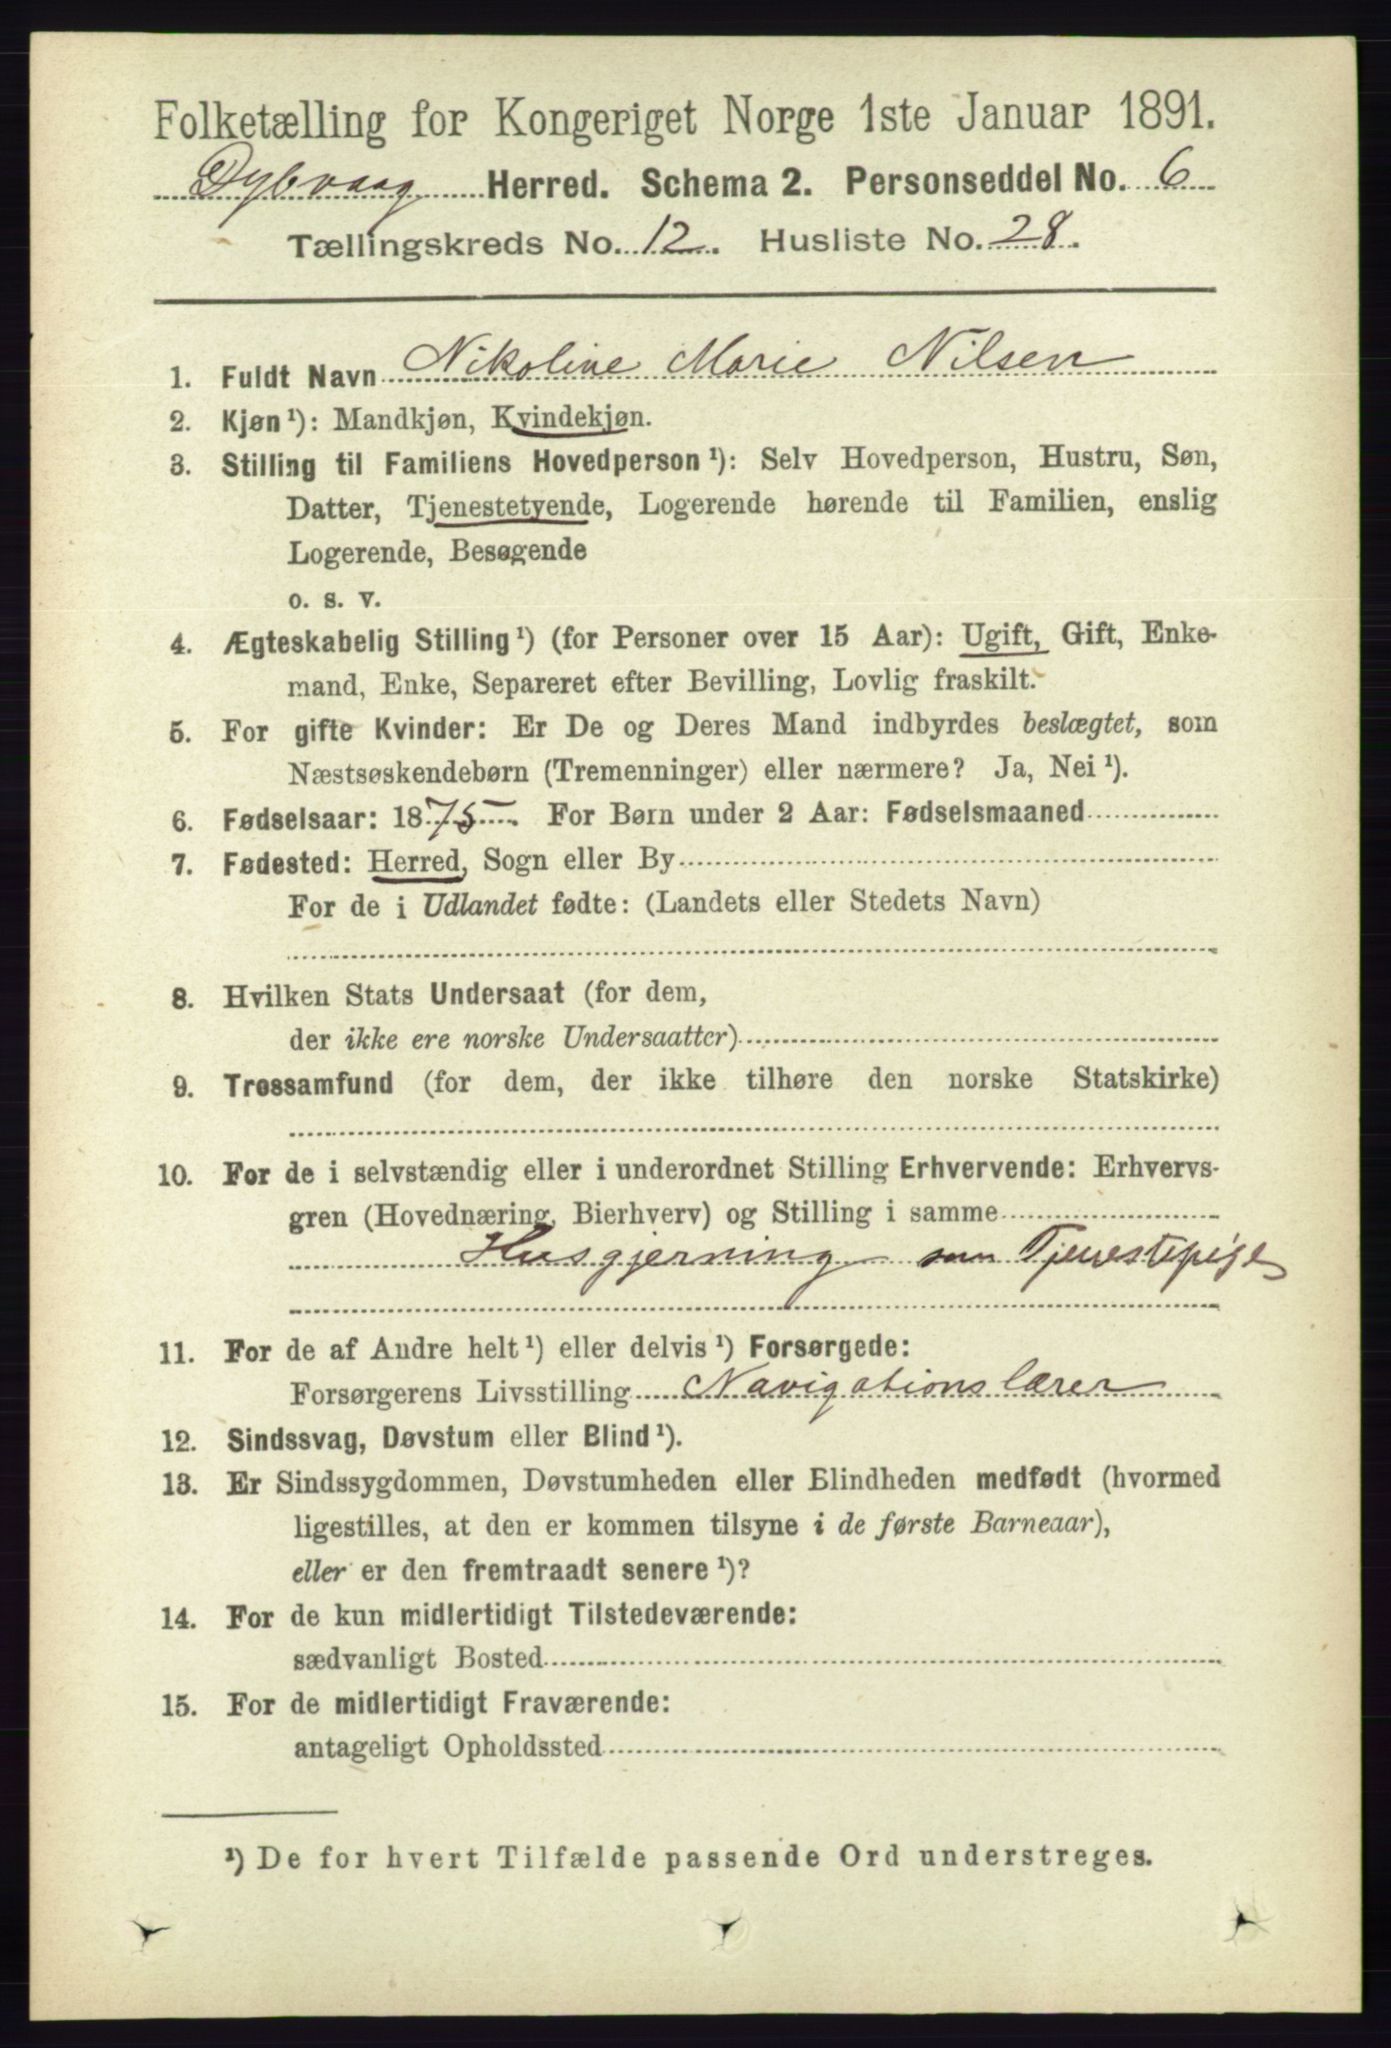 Folketælling for Kongeriget Norge 1ste Januar 1891.
Dybvaag Herred. Schema 2. Personseddel No. 6
Tællingskreds No. 12. Husliste No. 28.
1. Fuldt Navn Nikoline Marie Nilsen
2. Kjøn ¹): Mandkjøn, Kvindekjøn.
3. Stilling til Familiens Hovedperson ¹): Selv Hovedperson, Hustru, Søn,
Datter, Tjenestetyende, Logerende hørende til Familien, enslig
Logerende, Besøgende
o. s. v.
4. Ægteskabelig Stilling ¹) (for Personer over 15 Aar): Ugift, Gift, Enke-
mand, Enke, Separeret efter Bevilling, Lovlig fraskilt.
5. For gifte Kvinder: Er De og Deres Mand indbyrdes beslægtet, som
Næstsøskendebørn (Tremenninger) eller nærmere? Ja, Nei ¹).
6. Fødselsaar: 1875. For Børn under 2 Aar: Fødselsmaaned
7. Fødested: Herred, Sogn eller By
For de i Udlandet fødte: (Landets eller Stedets Navn)
8. Hvilken Stats Undersaat (for dem,
der ikke ere norske Undersaatter)
9. Trossamfund (for dem, der ikke tilhøre den norske Statskirke)
10. For de i selvstændig eller i underordnet Stilling Erhvervende: Erhvervs-
gren (Hovednæring, Bierhverv) og Stilling i samme
Husgjerning som Tjenestepige
11. For de af Andre helt ¹) eller delvis ¹) Forsørgede:
Forsørgerens Livsstilling Navigationslærer
12. Sindssvag, Døvstum eller Blind ¹).
13. Er Sindssygdommen, Døvstumheden eller Blindheden medfødt (hvormed
ligestilles, at den er kommen tilsyne i de første Barneaar),
eller er den fremtraadt senere ¹)?
14. For de kun midlertidigt Tilstedeværende:
sædvanligt Bosted
15. For de midlertidigt Fraværende:
antageligt Opholdssted
¹) De for hvert Tilfælde passende Ord understreges.